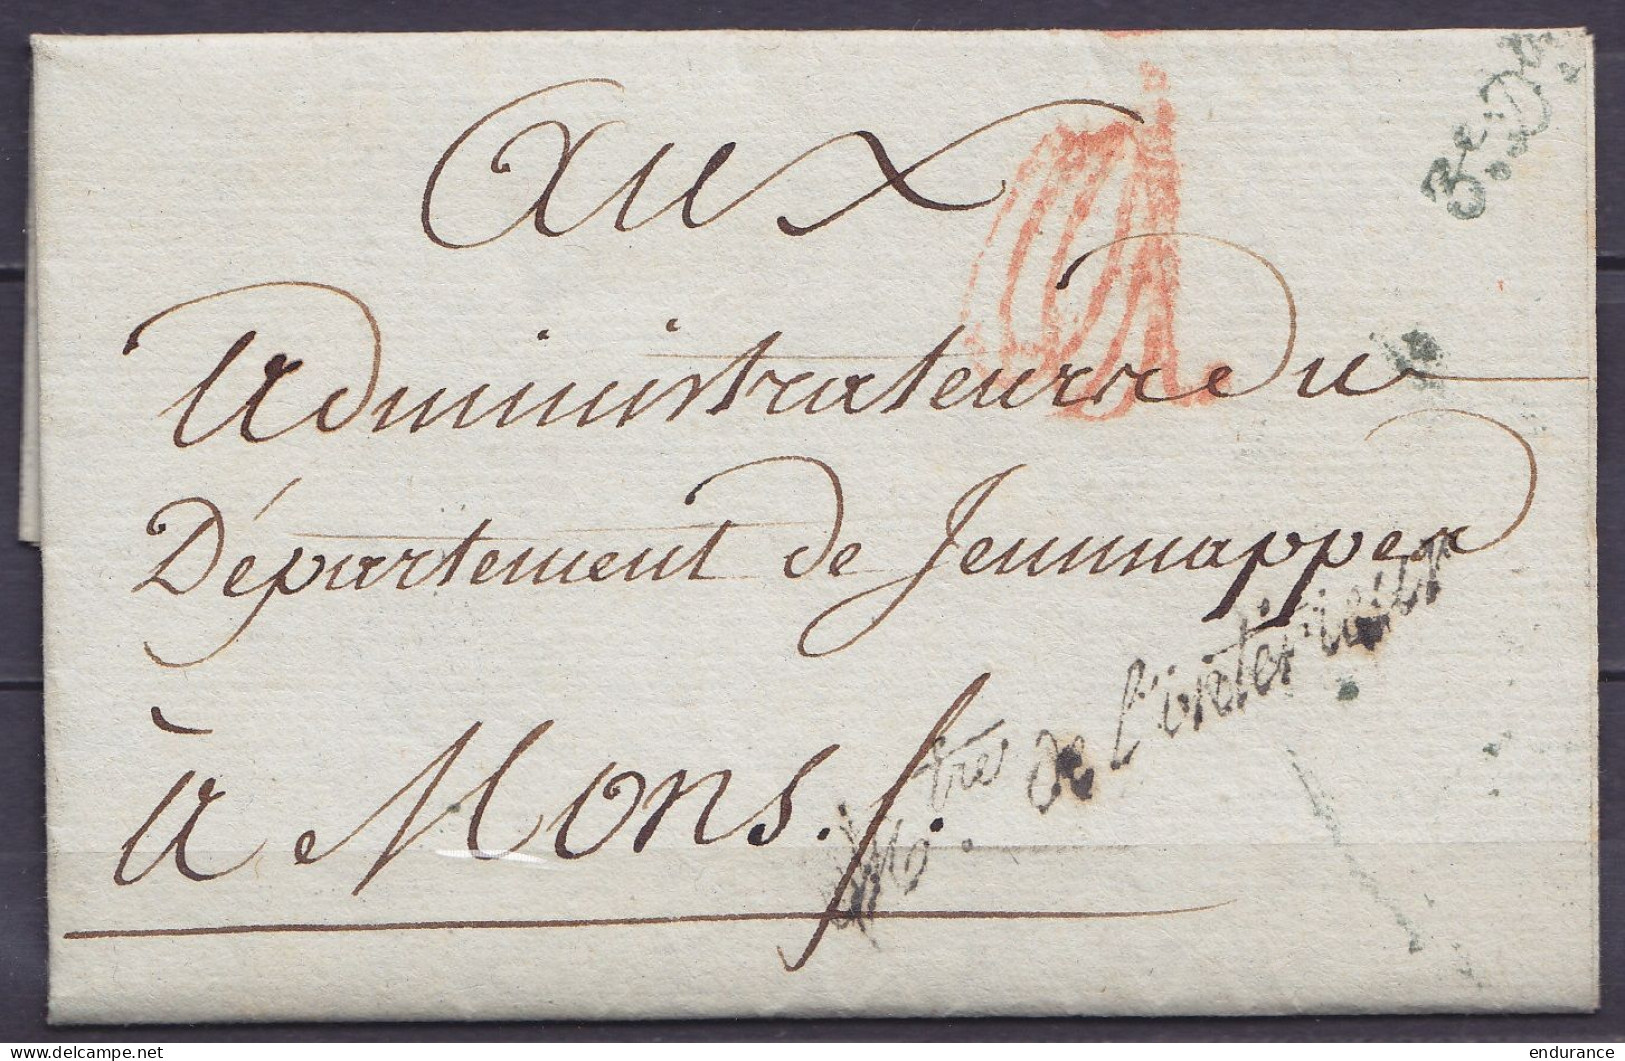 3e. D
Aux
Administrateurs du
Département de Jemmappes
à Mons. f.
de L'intérieur
delcampe.net
endurance